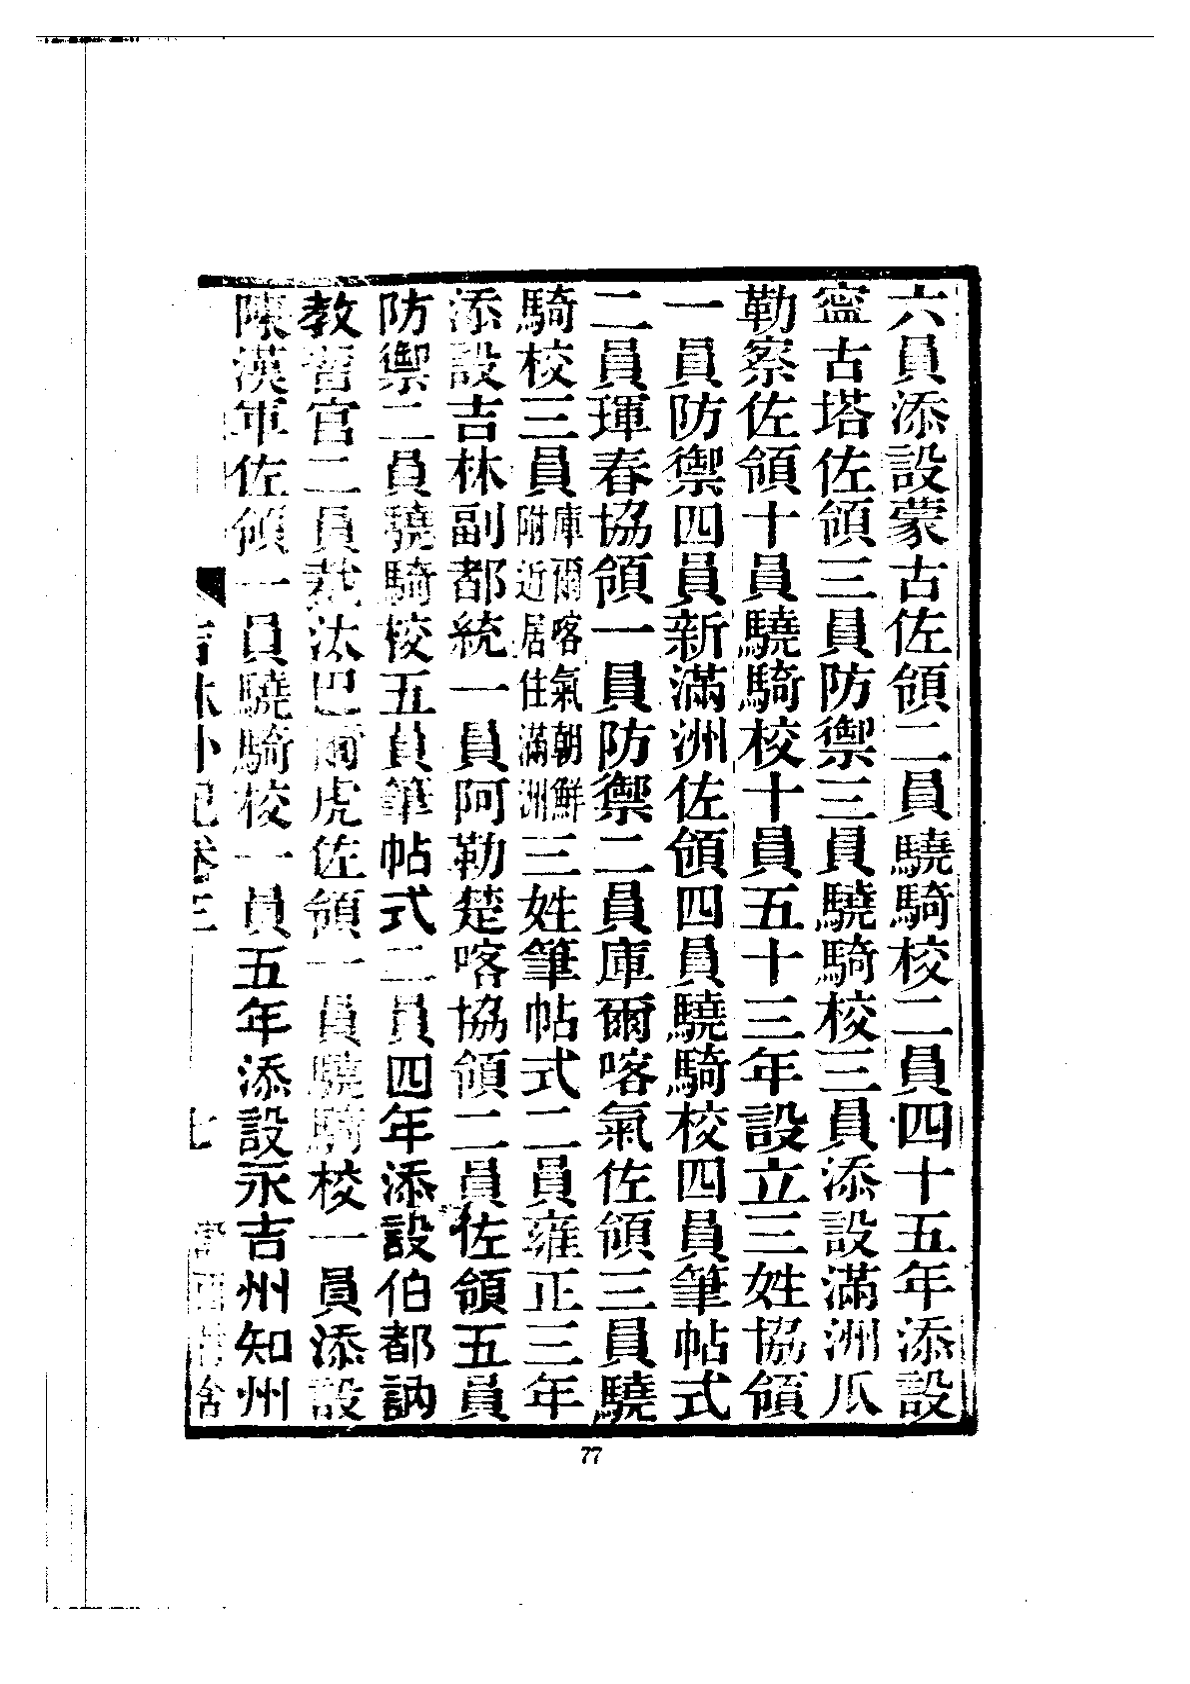 六員添設蒙古佐領二員驍騎校二員四十五年添設
寧古塔佐領三員防禦三員驍騎校三員添設滿洲爪
勒察佐領十員驍騎校十員五十三年設立三姓協領
一員防禦四員新滿洲佐領四員驍騎校四員筆帖式
二員琿春協領一員防禦二員庫爾喀氣佐領三員驍
騎校三員庫爾喀氣朝鮮附近居住滿洲三姓筆帖式二員雍正三年
添設吉林副都統一員阿勒楚喀協領二員佐領五員
防禦二員驍騎校五員筆帖式二員四年添設伯都訥
教習官二員裁汰巴爾虎佐領一員驍騎校一員添設
陳漢軍佐領一員驍騎校一員五年添設永吉州知州
吉林外紀卷三
七
77